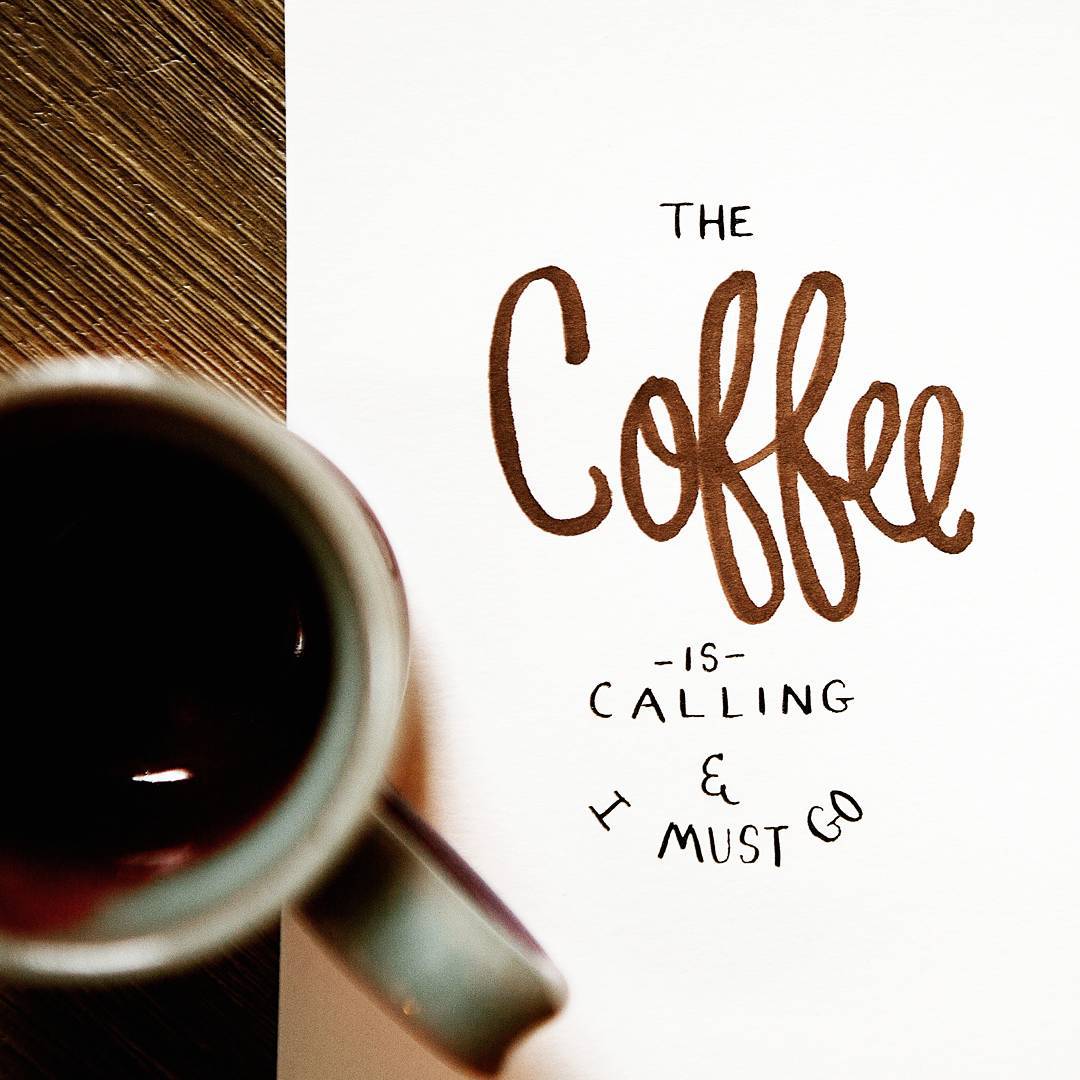 THE
Coffee
-IS-
CALLING
&
I MUST GO